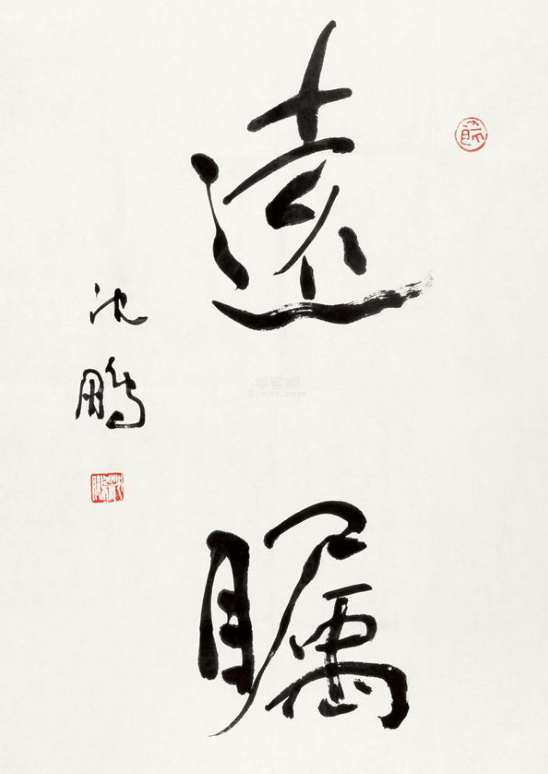 遠瞩
沈鹏